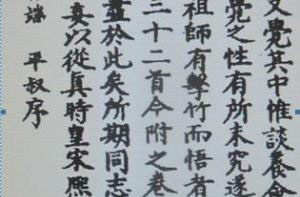 又覺其中惟談養命
覺之性有所未究遂
祖師有擊竹而悟者
三十二首今附之卷
盡於此矣所期同志
妄以從真時皇宋熈
端 平叔序